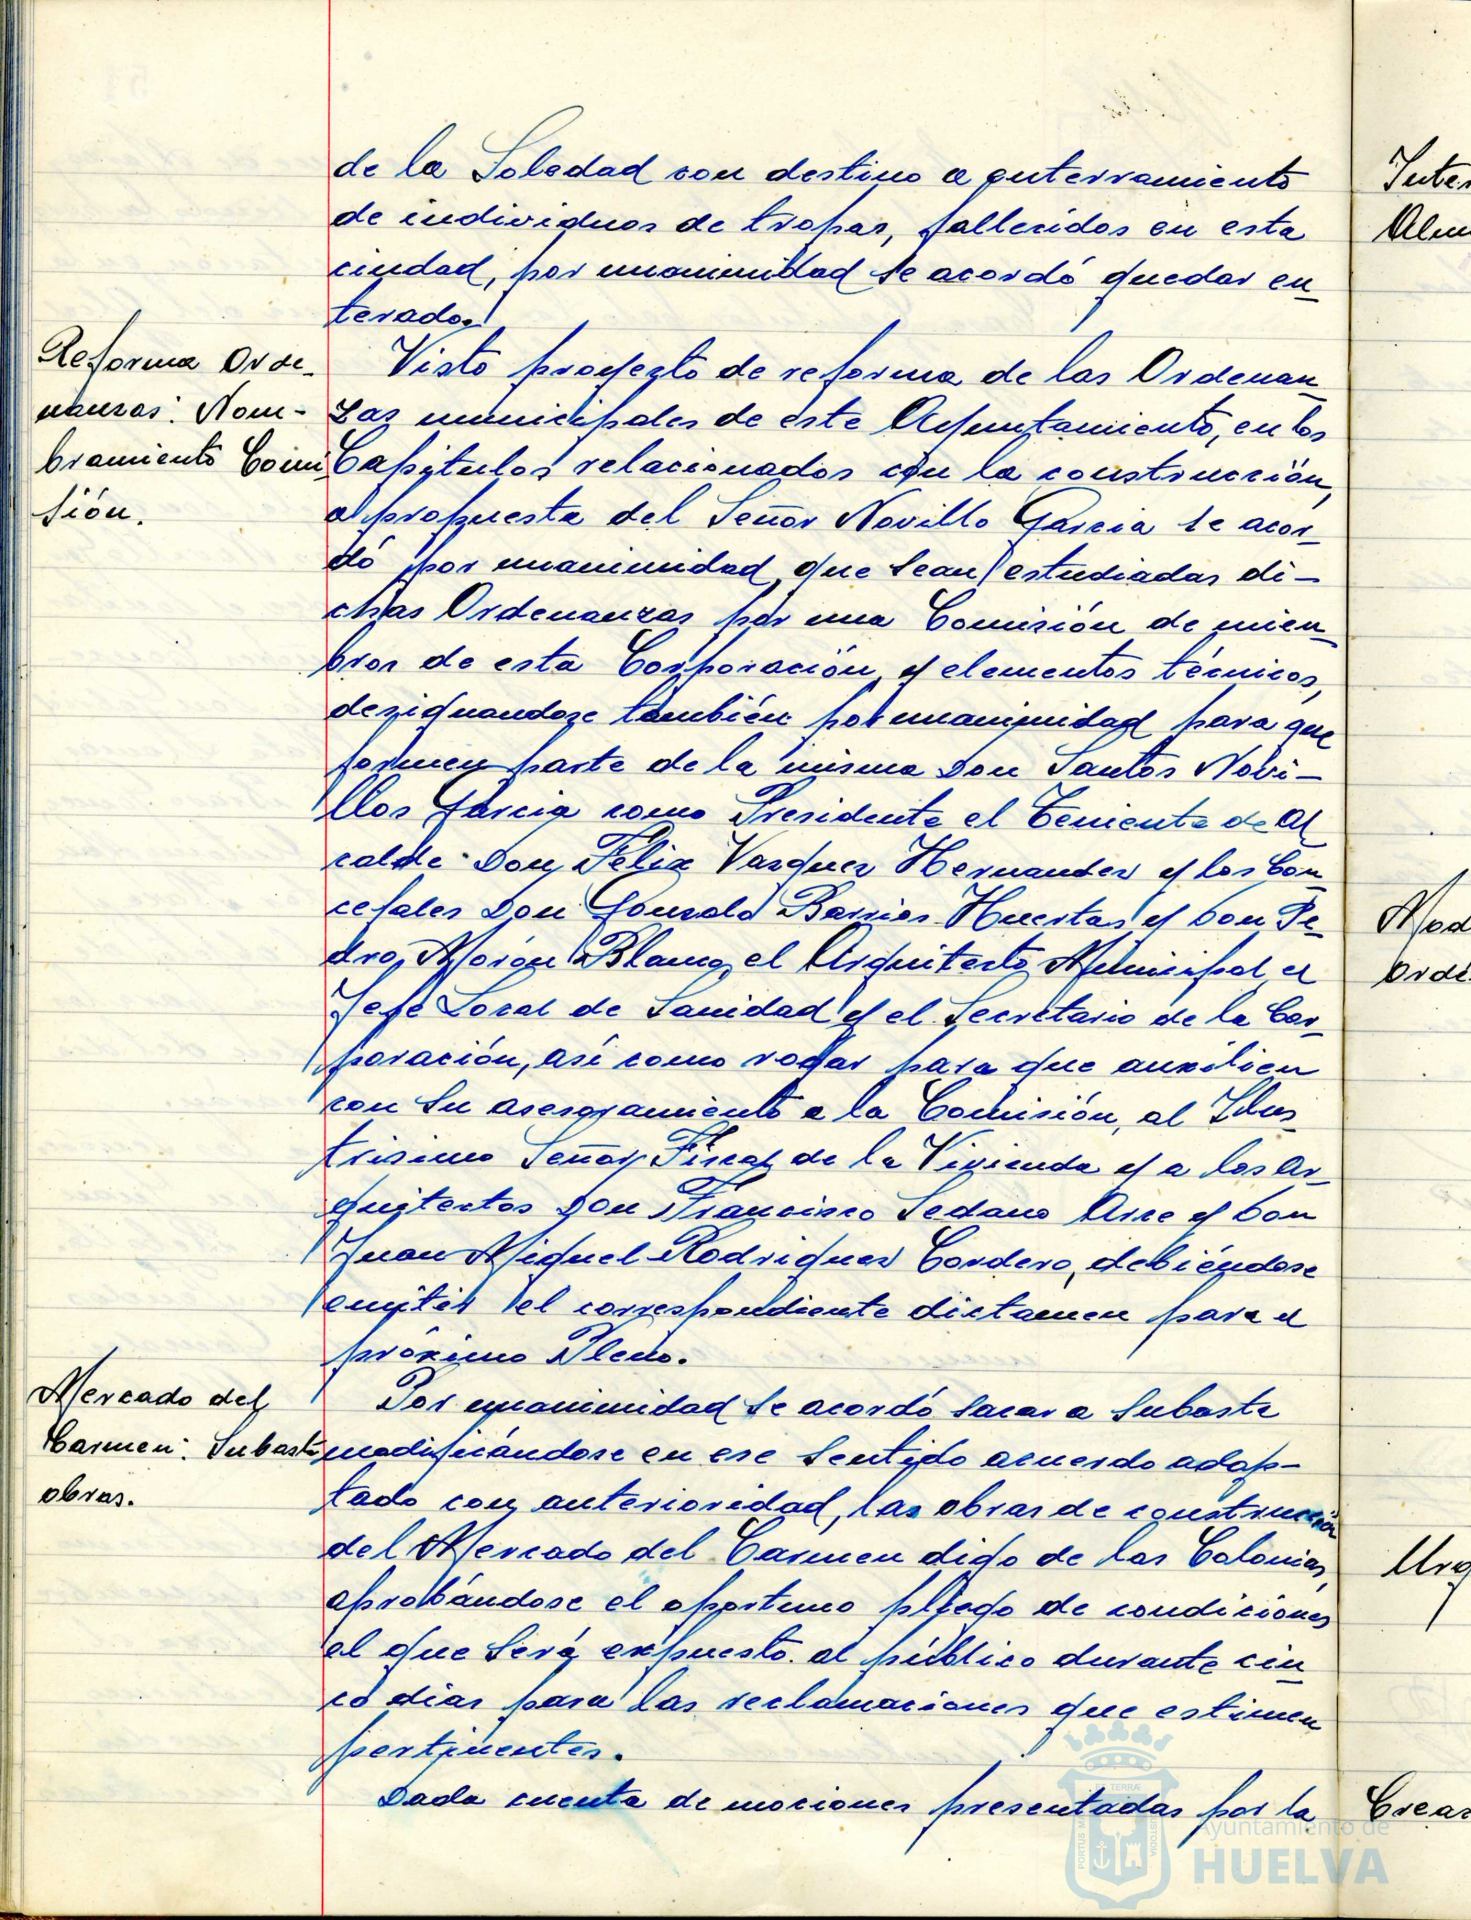 de la Soledad con destino a enterramiento
de individuos de tropas, fallecidos en esta
ciudad, por unanimidad se acordó quedar en-
terado.
Reforma Orde-
nanzas: Nom-
bramiento Comi-
sión.
Visto proyecto de reforma de las Ordenan-
zas municipales de este Ayuntamiento, en los
Capítulos relacionados con la construcción,
a propuesta del Señor Novillo Garcia se acor-
dó por unanimidad que sean estudiadas di-
chas Ordenanzas por una Comisión de miem-
bros de esta Corporación y elementos técnicos,
designandose también por unanimidad para que
formen parte de la misma Don Santos Novi-
llos Garcia como Presidente el Teniente de Al
calde Don Félix Vazquez Hernandez y los Con-
cejales Don Gonzalo Barrios Huertas y Don Pe-
dro Morón Blanco, el Arquitecto Municipal, el
Jefe Local de Sanidad y el Secretario de la Cor-
poración, así como rogar para que auxilien
con su asesoramiento a la Comisión, al Ilus-
trisimo Señor Fiscal de la Vivienda y a los Ar-
quitectos Don Francisco Sedano Arce y Don
Juan Miguel Rodriguez Cordero, debiéndose
emitir el correspondiente dictamen para el
próximo Pleno.
Mercado del
Carmen: Subasta
obras.
Por unanimidad se acordó sacar a subasta
modificándose en ese sentido acuerdo adop-
tado con anterioridad, las obras de construcción
del Mercado del Carmen digo de las Colonias,
aprobándose el oportuno pliego de condiciones
el que será expuesto al público durante cin-
co dias para las reclamaciones que estimen
pertinentes.
Dada cuenta de mociones presentadas por la
Ayuntamiento de
HUELVA